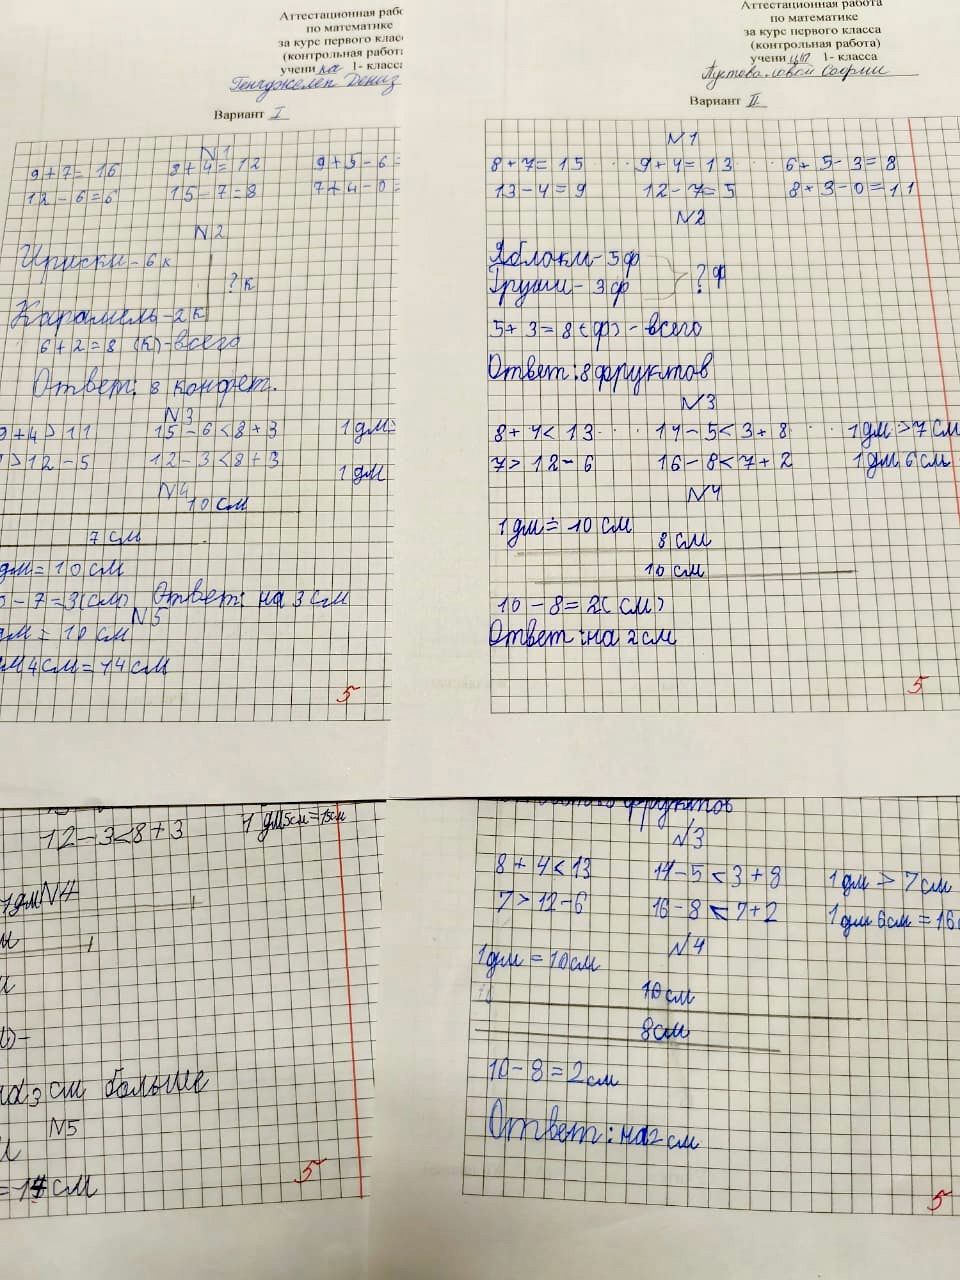 Аттестационная рабо
по математике
за курс первого класс
(контрольная работа
учени ка 1- класса
Вариант I
N1
9+7=16 8+4=12 9+5-6=
12-6=6 15-7=8 7+4-0=
N2
Ириски-6 к
? к
Карамель-2 к
6+2=8 (к)-всего
Ответ: 8 конфет.
N3
9+4>11 15-6<8+3 1 дм>
>12-5 12-3<8+3 1 дм
N4
10 см
7 см
дм=10 см
0-7=3(см) Ответ: на 3 см
N5
дм=10 см
дм 4 см=14 см
5
Аттестационная работа
по математике
за курс первого класса
(контрольная работа)
учени цы 1- класса
Пустоваловой Софии
Вариант II
N1
8+7=15 9+4=13 6+5-3=8
13-4=9 12-7=5 8+3-0=11
N2
Яблоки-5ф
Груши-3ф
? ф
5+3=8(ф)-всего
Ответ:8 фруктов
N3
8+4<13 14-5<3+8 1дм>7см
7>12-6 16-8<7+2 1дм 6см
N4
1дм=10см
8 см
10 см
10-8=2(см)
Ответ:на 2см
5
12-3<8+3 1 дм5см=15см
1дмN4
3 см больше
N5
=14 см
5
фруктов
N3
8+4<13 14-5<3+8 1дм>7см
7>12-6 16-8<7+2 1дм 6см=16
N4
1дм=10см
10см
8см
10-8=2см
Ответ: на2см
5